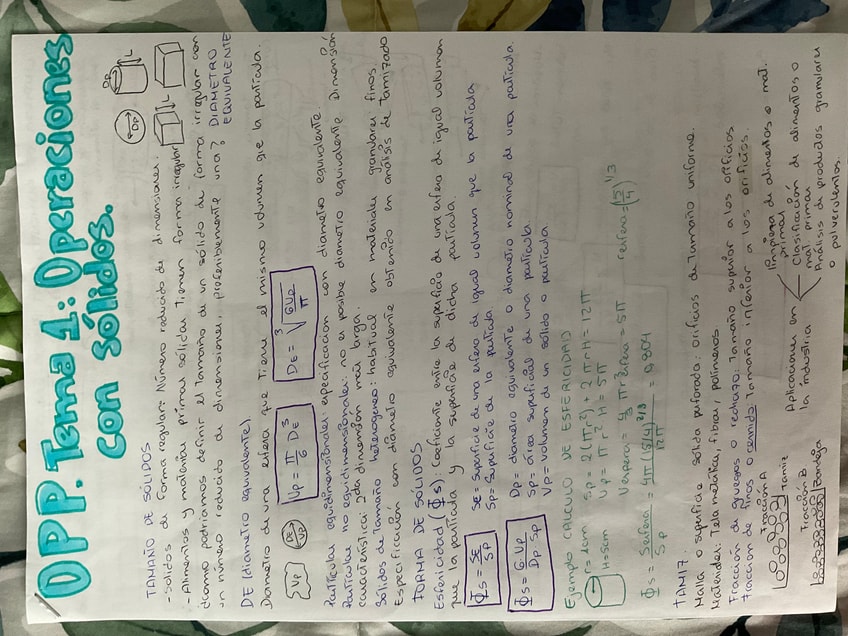 OPP. Tema 1: Operaciones
con sólidos.
TAMAÑO DE SÓLIDOS
- Sólidos de forma regular: Número reducido de dimensiones.
- Alimentos y materias primas sólidas tienen forma irregular
¿Como podríamos definir el tamaño de un sólido de forma irregular con
un número reducido de dimensiones, preferiblemente una? DIAMETRO
EQUIVALENTE
Dp
L
Dp
L
DE (diametro equivalente)
Diametro de una esfera que tiene el mismo volumen que la partícula.
Vp
DE
Vp
Vp = π/6 DE³
DE = ³√(6Vp/π)
Partículas equidimensionales: especificación con diametro equivalente.
Partículas no equidimensionales: no es posible diametro equivalente. Dimensión
característica: 2da dimensión más larga.
Sólidos de tamaño heterogeneo: habitual en materiales granulares finos.
Especificación con diámetro equivalente obtenido en análisis de tamizado
FORMA DE SÓLIDOS
Esfericidad (Φs): Coeficiente entre la superficie de una esfera de igual volumen
que la partícula y la superficie de dicha partícula
Φs = SE/Sp
SE = Superficie de una esfera de igual volumen que la partícula
Sp = Superficie de la partícula.
Φs = 6·Vp/Dp·Sp
Dp = diámetro equivalente o diámetro nominal de una partícula.
Sp = área superficial de una partícula
Vp = volumen de un sólido o partícula
Ejemplo CALCULO DE ESFERICIDAD
r = 1cm Sp = 2(πr²) + 2πrH = 12π
H = 5cm Vp = πr²·H = 5π
Vesfera = 4/3 πr³esfera = 5π resfera = (15/4)^1/3
Φs = Sesfera/Sp = 4π(15/4)^2/3/12π = 0,804
TAMIZ.
Malla o superficie sólida perforada: orificios de tamaño uniforme.
Materiales: Tela metálica, fibras, polímeros
Fracción de gruesos o rechazo: Tamaño superior a los orificios
Fracción de finos o cernido: Tamaño inferior a los orificios.
Fracción A
Tamiz
Fracción B
Bandeja
Aplicaciones en
la industria
Limpieza de alimentos o mat.
primas
Clasificación de alimentos o
mat primas
Análisis de productos granulares
o pulverulentos.